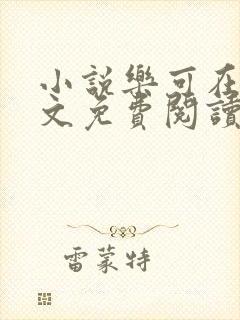 小説樂可在
文免費閱讀
雷蒙特